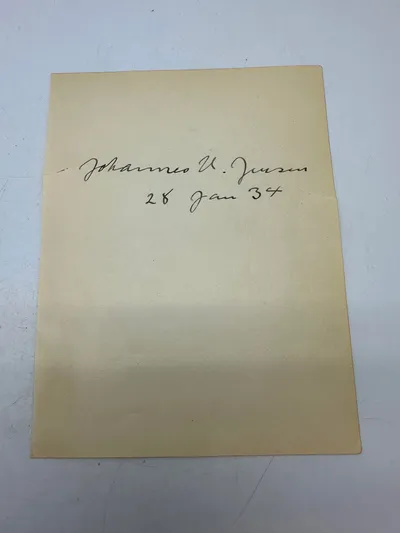 Johannes V. Jensen
28 Jan 34